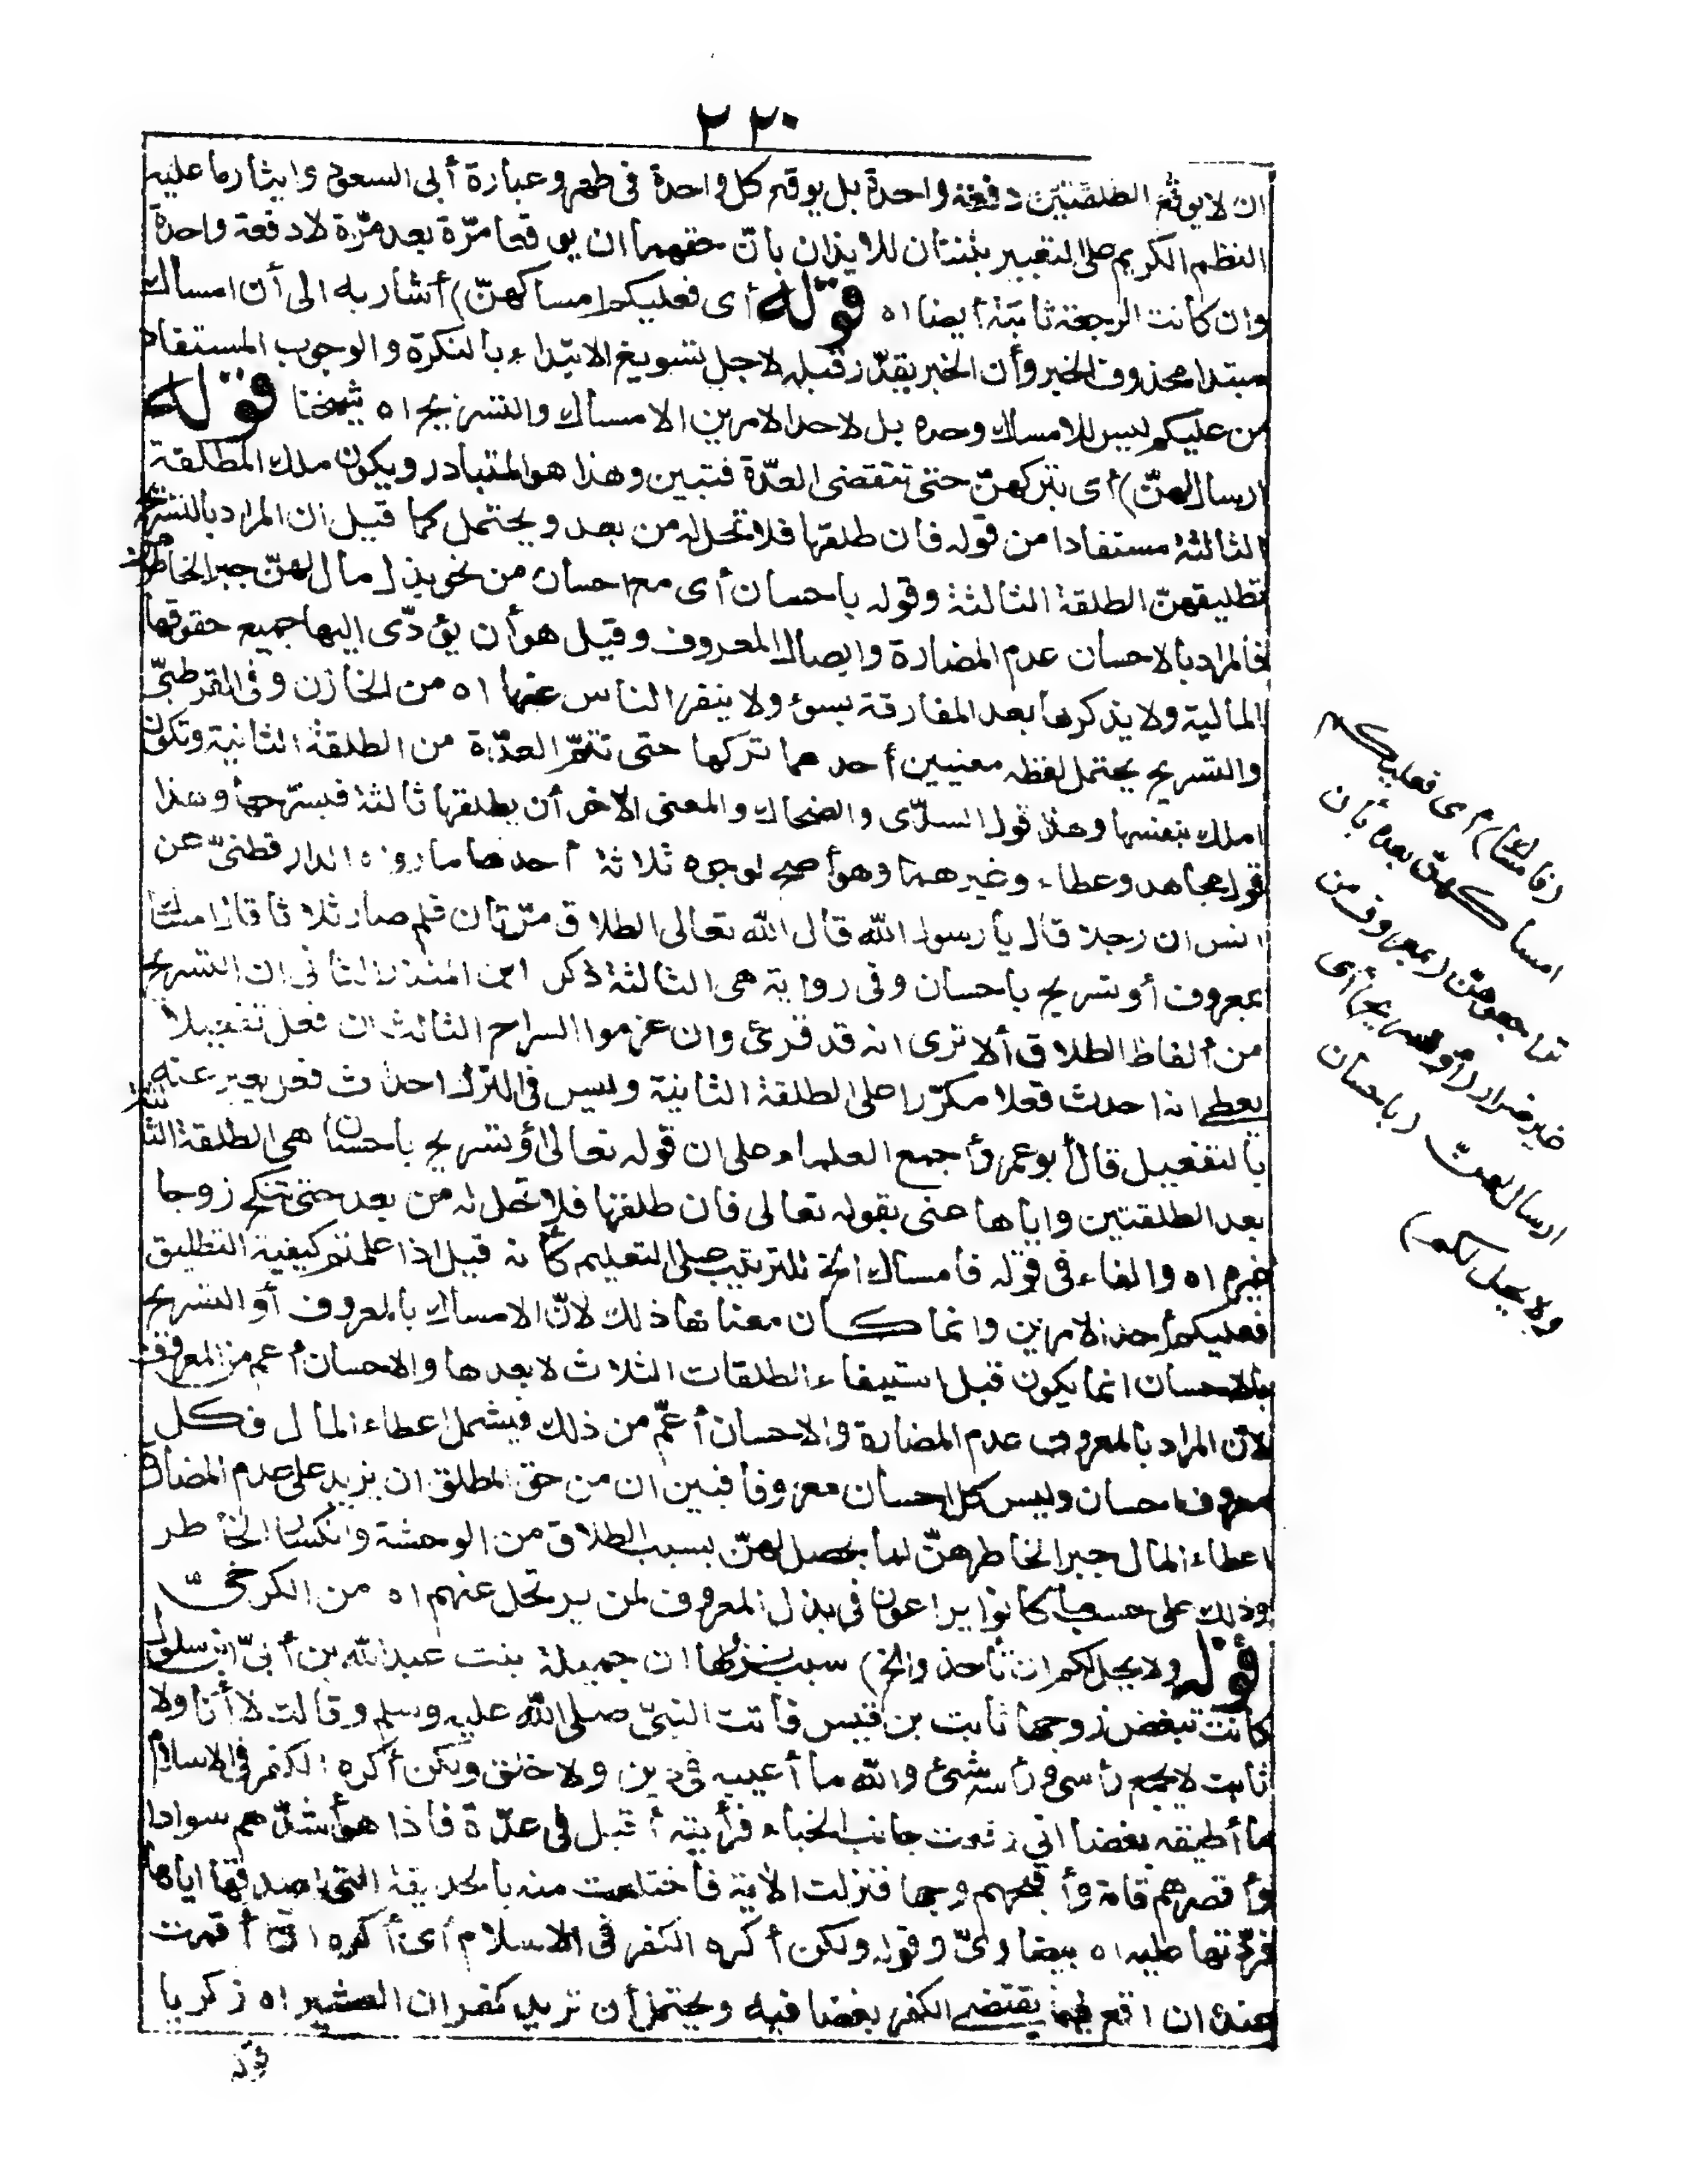 ٢٢٠
ان لا يوقع الطلقتين دفعة واحدة بل يوقع كل واحدة فى طهر وعبارة أبى السعود وايثار ما عليه
النظم الكريم على التعبير بثنتان للايذان بانّ حقهما ان يوقعا مرّة بعد مرّة لا دفعة واحدة
وان كانت الرجعة ثابتة أيضا اه قوله أى فعليكم امساكهنّ) أشار به الى أن امساك
مبتدا محذوف الخبر وأن الخبر يقدّر قبله لاجل تسويغ الابتداء بالنكرة والوجوب المستفاد
من عليكم ليس للامساك وحده بل لاحد الامرين الامساك والتسريح اه شيخنا قوله
ارسالهنّ) أى بتركهنّ حتى تنقضى العدّة فتبين وهذا هو المتبادر ويكون ملك المطلقة
الثالثة مستفادا من قوله فان طلقها فلا تحل له من بعد ويحتمل كما قيل ان المراد بالتسريح
تطليقهنّ الطلقة الثالثة وقوله باحسان أى مع احسان من نحو بذل مال لهنّ جبر الخاطرهنّ
فالمراد بالاحسان عدم المضارة وايصال المعروف وقيل هو أن يؤدّى اليها جميع حقوقها
المالية ولا يذكرها بعد المفارقة بسوء ولا ينفر الناس عنها اه من الخازن وفى القرطبىّ
والتسريح يحتمل لفظه معنيين أحدهما تركها حتى تتم العدّة من الطلقة الثانية وتكون
املك بنفسها وهذا قول السدّى والضحاك والمعنى الاخر أن يطلقها ثالثة فيسرّحها وهذا
قول مجاهد وعطاء وغيرهما وهو أصح لوجوه ثلاثة أحدها ما رواه الدار قطنىّ عن
انس ان رجلا قال يا رسول الله قال الله تعالى الطلاق مرّتان فلم صار ثلاثا قال امساك
بمعروف أو تسريح باحسان وفى رواية هى الثالثة ذكر ابن المنذر الثانى ان التسريح
من ألفاظ الطلاق ألا ترى انه قد قرئ وان عزموا السراح الثالث ان فعل تفعيلا
يعطى انه احدث فعلا مكرّرا على الطلقة الثانية وليس فى الترك احداث فعل يعبر عنه
بالتفعيل قال أبو عمر وأجمع العلماء على ان قوله تعالى أو تسريح باحسان هى الطلقة الثالثة
بعد الطلقتين واياها عنى بقوله تعالى فان طلقها فلا تحل له من بعد حتى تنكح زوجا
غيره اه والفاء فى قوله فامساك الخ للترتيب على التعليم كأنه قيل اذا علمتم كيفية التطليق
فعليكم أحد الامرين وانما كان معناها ذلك لانّ الامساك بالمعروف أو التسريح
بالاحسان انما يكون قبل استيفاء الطلقات الثلاث لا بعدها والاحسان أعم من المعروف
لانّ المراد بالمعروف عدم المضارة والاحسان أعمّ من ذلك فيشمل اعطاء المال فكل
معروف احسان وليس كل احسان معروفا فبين ان من حق المطلق ان يزيد على عدم المضارة
اعطاء المال جبرا لخاطرهنّ لما يحصل لهنّ بسبب الطلاق من الوحشة وانكسار الخاطر
وذلك على حسب ما كانوا يراعون فى بذل المعروف لمن يرتحل عنهم اه من الكرخىّ
قوله ولا يحل لكم ان تأخذوا الخ) سبب نزولها ان جميلة بنت عبد الله بن أبىّ ابن سلول
كانت تبغض زوجها ثابت بن قيس فاتت النبىّ صلى الله عليه وسلم وقالت لا أنا ولا
ثابت لا يجمع رأسى ورأسه شئ والله ما أعيبه فى دين ولا خلق ولكن أكره الكفر فى الاسلام
ما أطيقه بغضا انى رفعت جانب الخباء فرأيته أقبل فى عدّة فاذا هو أشدّهم سوادا
وأقصرهم قامة وأقبحهم وجها فنزلت الاية فاختلعت منه بالحديقة التى اصدقها اياها
فردّتها عليه اه بيضاوىّ وقوله ولكن أكره الكفر فى الاسلام أى أكره ان أقمت
عنده ان اقع فيما يقتضى الكفر بغضا فيه ويحتمل أن تريد كفران العشير اه زكريا
قوله
(فامساك) أى فعليكم
امساكهنّ بعده بأن
تراجعوهنّ (بمعروف) من
غير ضرار (أو تسريح) أى
ارسالهنّ (باحسان
ولا يحل لكم)